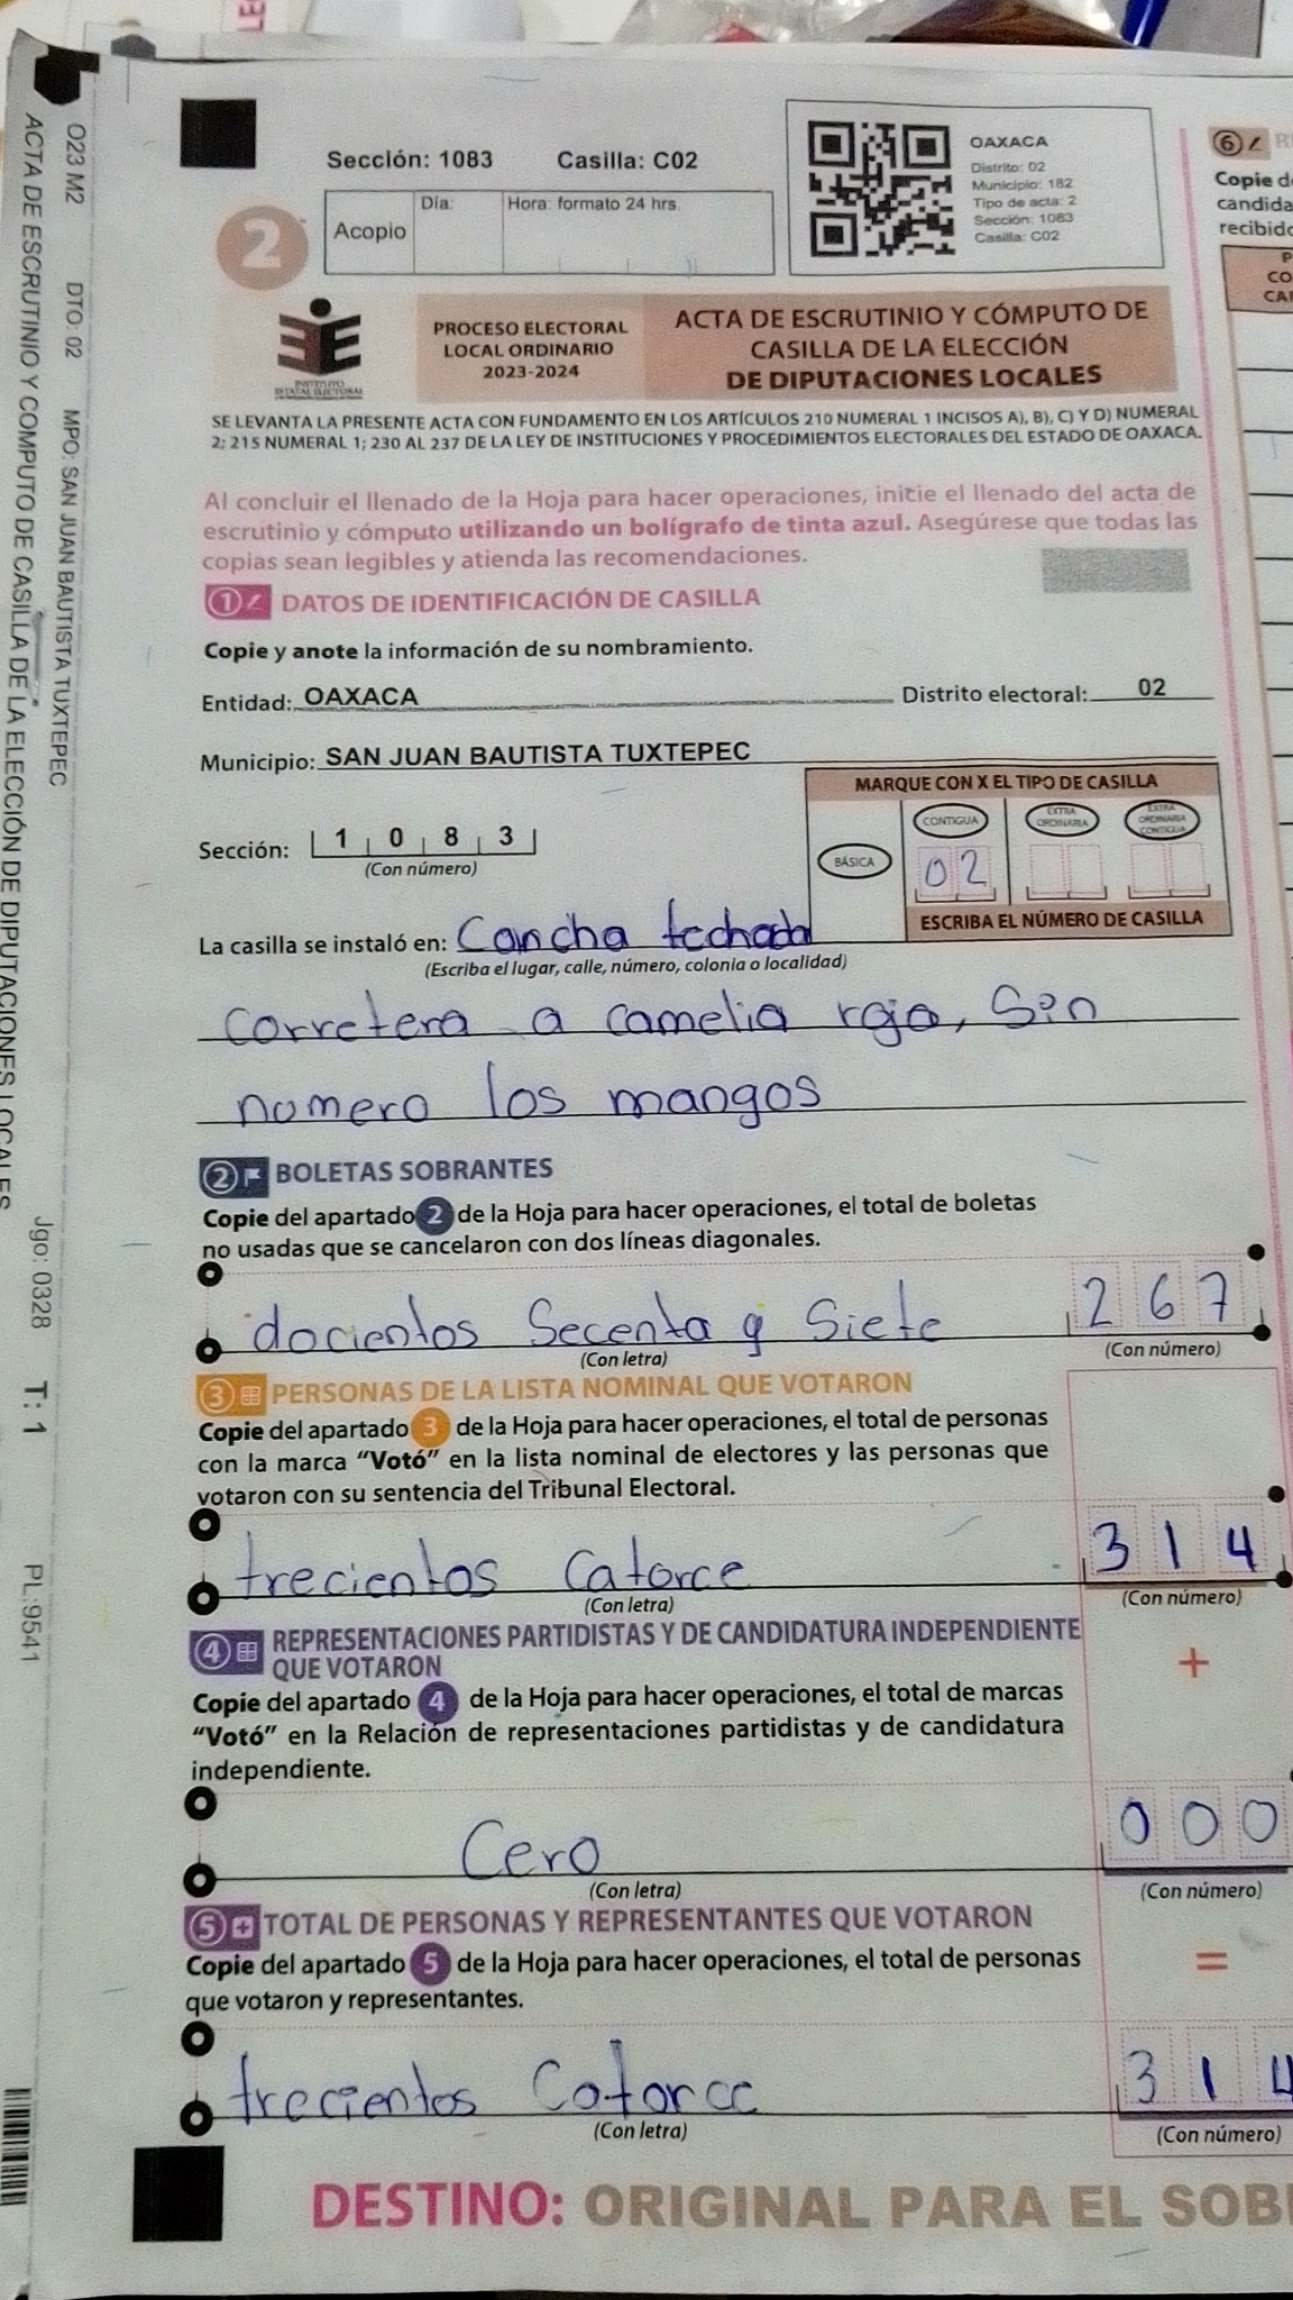 Sección: 1083 Casilla: C02
2
Acopio Día: Hora: formato 24 hrs.
OAXACA
Distrito: 02
Municipio: 182
Tipo de acta: 2
Sección: 1083
Casilla: C02
PROCESO ELECTORAL
LOCAL ORDINARIO
2023-2024
ACTA DE ESCRUTINIO Y CÓMPUTO DE
CASILLA DE LA ELECCIÓN
DE DIPUTACIONES LOCALES
SE LEVANTA LA PRESENTE ACTA CON FUNDAMENTO EN LOS ARTÍCULOS 210 NUMERAL 1 INCISOS A), B), C) Y D) NUMERAL
2; 215 NUMERAL 1; 230 AL 237 DE LA LEY DE INSTITUCIONES Y PROCEDIMIENTOS ELECTORALES DEL ESTADO DE OAXACA.
Al concluir el llenado de la Hoja para hacer operaciones, inicie el llenado del acta de
escrutinio y cómputo utilizando un bolígrafo de tinta azul. Asegúrese que todas las
copias sean legibles y atienda las recomendaciones.
1 DATOS DE IDENTIFICACIÓN DE CASILLA
Copie y anote la información de su nombramiento.
Entidad: OAXACA Distrito electoral: 02
Municipio: SAN JUAN BAUTISTA TUXTEPEC
MARQUE CON X EL TIPO DE CASILLA
BÁSICA
CONTIGUA
EXTRA
ORDINARIA
EXTRA
ORDINARIA
CONTIGUA
02
ESCRIBA EL NÚMERO DE CASILLA
Sección: 1 0 8 3
(Con número)
La casilla se instaló en: Cancha techada
(Escriba el lugar, calle, número, colonia o localidad)
corretera a camelia roja, Sin
numero los mangos
2 BOLETAS SOBRANTES
Copie del apartado 2 de la Hoja para hacer operaciones, el total de boletas
no usadas que se cancelaron con dos líneas diagonales.
docientos Secenta y Siete 267
(Con letra) (Con número)
3 PERSONAS DE LA LISTA NOMINAL QUE VOTARON
Copie del apartado 3 de la Hoja para hacer operaciones, el total de personas
con la marca “Votó” en la lista nominal de electores y las personas que
votaron con su sentencia del Tribunal Electoral.
trecientos Catorce 314
(Con letra) (Con número)
4 REPRESENTACIONES PARTIDISTAS Y DE CANDIDATURA INDEPENDIENTE
QUE VOTARON
+
Copie del apartado 4 de la Hoja para hacer operaciones, el total de marcas
“Votó” en la Relación de representaciones partidistas y de candidatura
independiente.
Cero 000
(Con letra) (Con número)
5 TOTAL DE PERSONAS Y REPRESENTANTES QUE VOTARON
Copie del apartado 5 de la Hoja para hacer operaciones, el total de personas
=
que votaron y representantes.
trecientos Catorce 314
(Con letra) (Con número)
DESTINO: ORIGINAL PARA EL SOB
6
Copie d
candida
recibido
P
CO
CA
O23 M2 DTO: 02 MPO: SAN JUAN BAUTISTA TUXTEPEC
ACTA DE ESCRUTINIO Y COMPUTO DE CASILLA DE LA ELECCIÓN DE DIPUTACIONES LOCALES
Jgo: 0328 T: 1 PL:9541